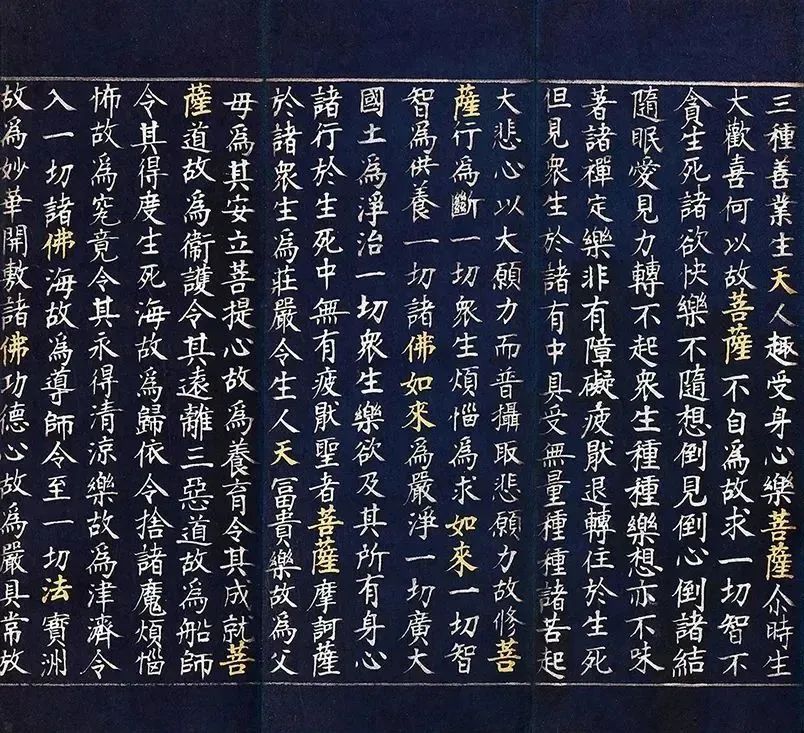 三種善業生天人趣受身心樂菩薩尒時生
大歡喜何以故菩薩不自為故求一切智不
貪生死諸欲快樂不隨想倒見倒心倒諸結
隨眠愛見力轉不起衆生種種樂想亦不味
著諸禪定樂非有障礙疲猒退轉住於生死
但見衆生於諸有中具受無量種種諸苦起
大悲心以大願力而普攝取悲願力故修菩
薩行為斷一切衆生煩惱為求如來一切智
智為供養一切諸佛如來為嚴淨一切廣大
國土為淨治一切衆生樂欲及其所有身心
諸行於生死中無有疲猒聖者菩薩摩訶薩
於諸衆生為莊嚴令生人天冨貴樂故為父
母為其安立菩提心故為養育令其成就菩
薩道故為衛護令其遠離三惡道故為船師
令其得度生死海故為歸依令捨諸魔煩惱
怖故為究竟令其永得清涼樂故為津濟令
入一切諸佛海故為導師令至一切法寶洲
故為妙華開敷諸佛功德心故為嚴具常放